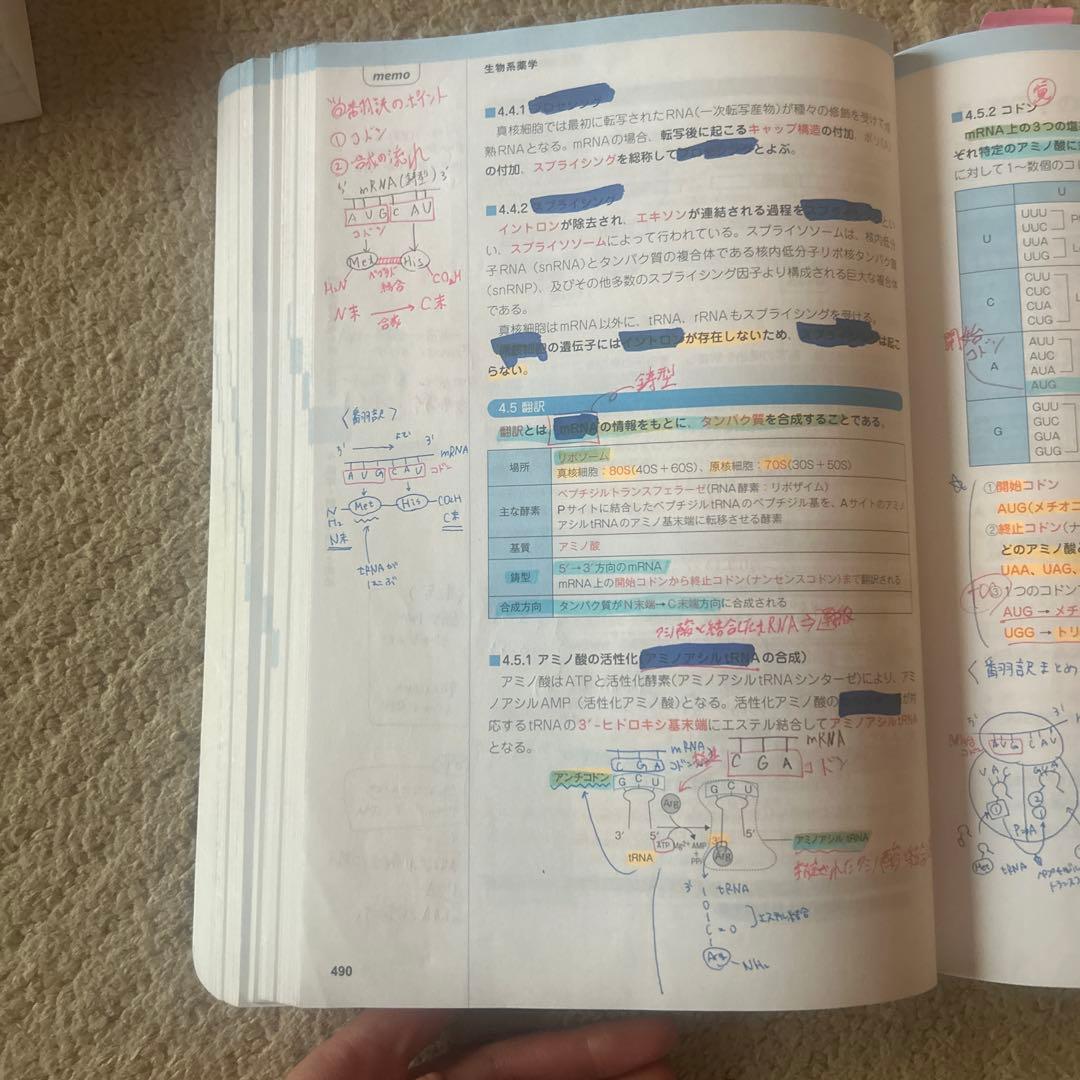 memo
生物系薬学
翻訳のポイント
① コドン
② 合成の流れ
5' mRNA(鋳型) 3'
A U G C A U
コドン
Met His
ペプチド
結合
H₂N CO₂H
N末 → C末
合成
〈翻訳〉
5' 3'
mRNA
A U G C A U コドン
Met His CO₂H
N末 C末
tRNAが
はこぶ
■4.4.1 プロセシング
真核細胞では最初に転写されたRNA(一次転写産物)が種々の修飾を受けて成
熟RNAとなる。mRNAの場合、転写後に起こるキャップ構造の付加、ポリ(A)
の付加、スプライシングを総称して とよぶ。
■4.4.2 スプライシング
イントロンが除去され、エキソンが連結される過程を とい
い、スプライソソームによって行われている。スプライソソームは、核内低分
子RNA(snRNA)とタンパク質の複合体である核内低分子リボ核タンパク質
(snRNP)、及びその他多数のスプライシング因子より構成される巨大な複合体
である。
真核細胞はmRNA以外に、tRNA、rRNAもスプライシングを受ける。
原核細胞の遺伝子にはイントロンが存在しないため、 は起こ
らない。
鋳型
4.5 翻訳
翻訳とは、mRNAの情報をもとに、タンパク質を合成することである。
場所
リボソーム
真核細胞:80S(40S+60S)、原核細胞:70S(30S+50S)
主な酵素
ペプチジルトランスフェラーゼ(RNA酵素:リボザイム)
Pサイトに結合したペプチジルtRNAのペプチジル基を、Aサイトのアミノ
アシルtRNAのアミノ基末端に転移させる酵素
基質 アミノ酸
鋳型
5'→3'方向のmRNA
mRNA上の開始コドンから終止コドン(ナンセンスコドン)まで翻訳される
合成方向 タンパク質がN末端→C末端方向に合成される
アミノ酸と結合したtRNA⇒
■4.5.1 アミノ酸の活性化(アミノアシルtRNAの合成)
アミノ酸はATPと活性化酵素(アミノアシルtRNAシンターゼ)により、アミ
ノアシルAMP(活性化アミノ酸)となる。活性化アミノ酸の が対
応するtRNAの3'-ヒドロキシ基末端にエステル結合してアミノアシルtRNA
となる。
mRNA
C G A コドン
アンチコドン
G C U
mRNA
C G A コドン
G C U
Arg
3' 5'
ATP Mg²⁺ AMP
+
PPi
tRNA
3' 5'
Arg
アミノアシル tRNA
3' tRNA
O
C=O
エステル結合
Arg NH₂
490
■4.5.2 コドン
mRNA上の3つの塩
それぞれ特定のアミノ酸に
に対して1〜数個のコ
U
U
UUU
UUC
UUA
UUG
C
CUU
CUC
CUA
CUG
開始
コドン
A
AUU
AUC
AUA
AUG
G
GUU
GUC
GUA
GUG
①開始コドン
AUG(メチオニ
②終止コドン(ナ
どのアミノ酸
UAA、UAG、
③1つのコドン
AUG → メチ
UGG → トリ
〈翻訳まとめ
5'
A U G C A U
U A C G U A
Met tRNA